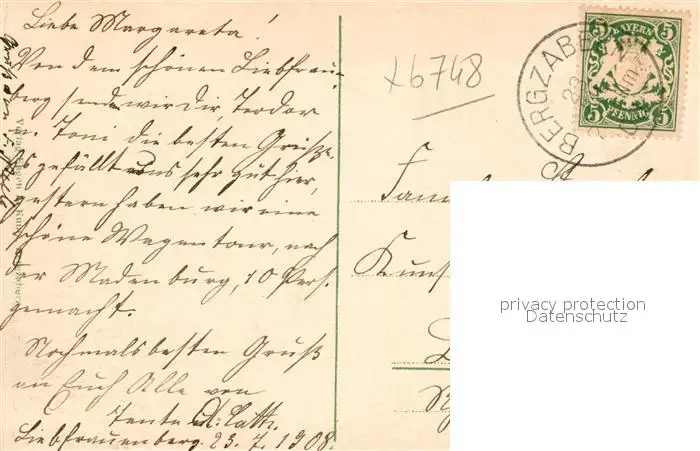 Liebe Margareta!
Von dem schönen Liebfrau-
berg senden wir dir, Teodor
u. Toni die besten Grüsse.
Es gefällt uns sehr gut hier,
gestern haben wir eine
schöne Wagentour, nach
der Madenburg, 10 Pers.
gemacht.
Nochmals besten Gruß
an Euch Alle von
Tante
Liebfrauenberg. 23. 7. 1908.
x6748
BERGZABE
BAYERN
5 5
PFENNIG
5 5
privacy protection
Datenschutz